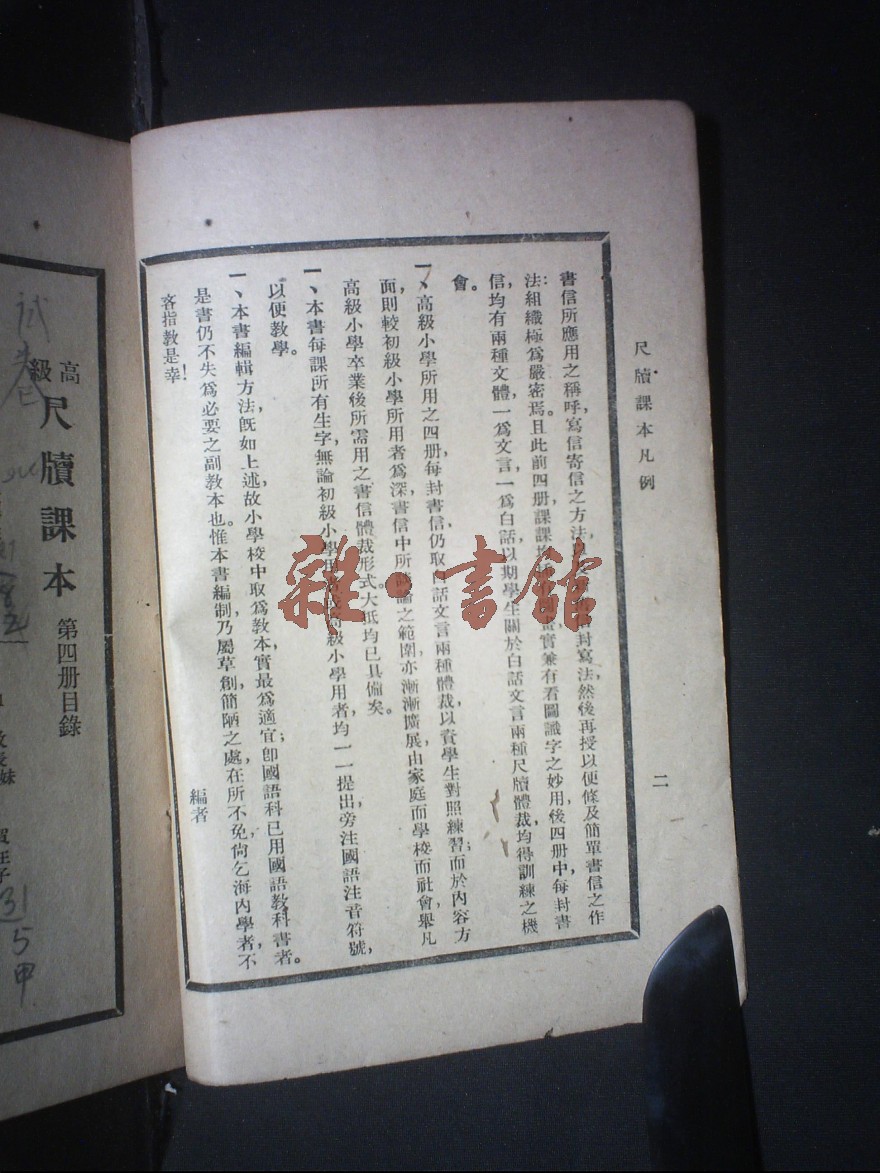 尺牘課本凡例
二
書信所應用之稱呼,寫信寄信之方法,封寫法,然後再授以便條及簡單書信之作
法;組織極爲嚴密焉。且此前四册,課課實兼有看圖識字之妙用,後四册中,每封書
信,均有兩種文體,一爲文言,一爲白話,以期學生關於白話文言兩種尺牘體裁,均得訓練之機
會。
一、高級小學所用之四册,每封書信,仍取白話文言兩種體裁,以資學生對照練習;而於內容方
面,則較初級小學所用者爲深,書信中所論之範圍,亦漸漸擴展,由家庭而學校而社會,舉凡
高級小學卒業後所需用之書信體裁形式,大抵均已具備矣。
一、本書每課所有生字,無論初級小學用高級小學用者,均一一提出,旁注國語注音符號,
以便教學。
一、本書編輯方法,旣如上述,故小學校中取爲教本,實最爲適宜;卽國語科已用國語教科書者,
是書仍不失爲必要之副教本也。惟本書編制,乃屬草創,簡陋之處,在所不免,尙乞海內學者,不
吝指教是幸!
編者
雜·書館
高級
尺牘課本
第四册目錄
試卷
31
5甲